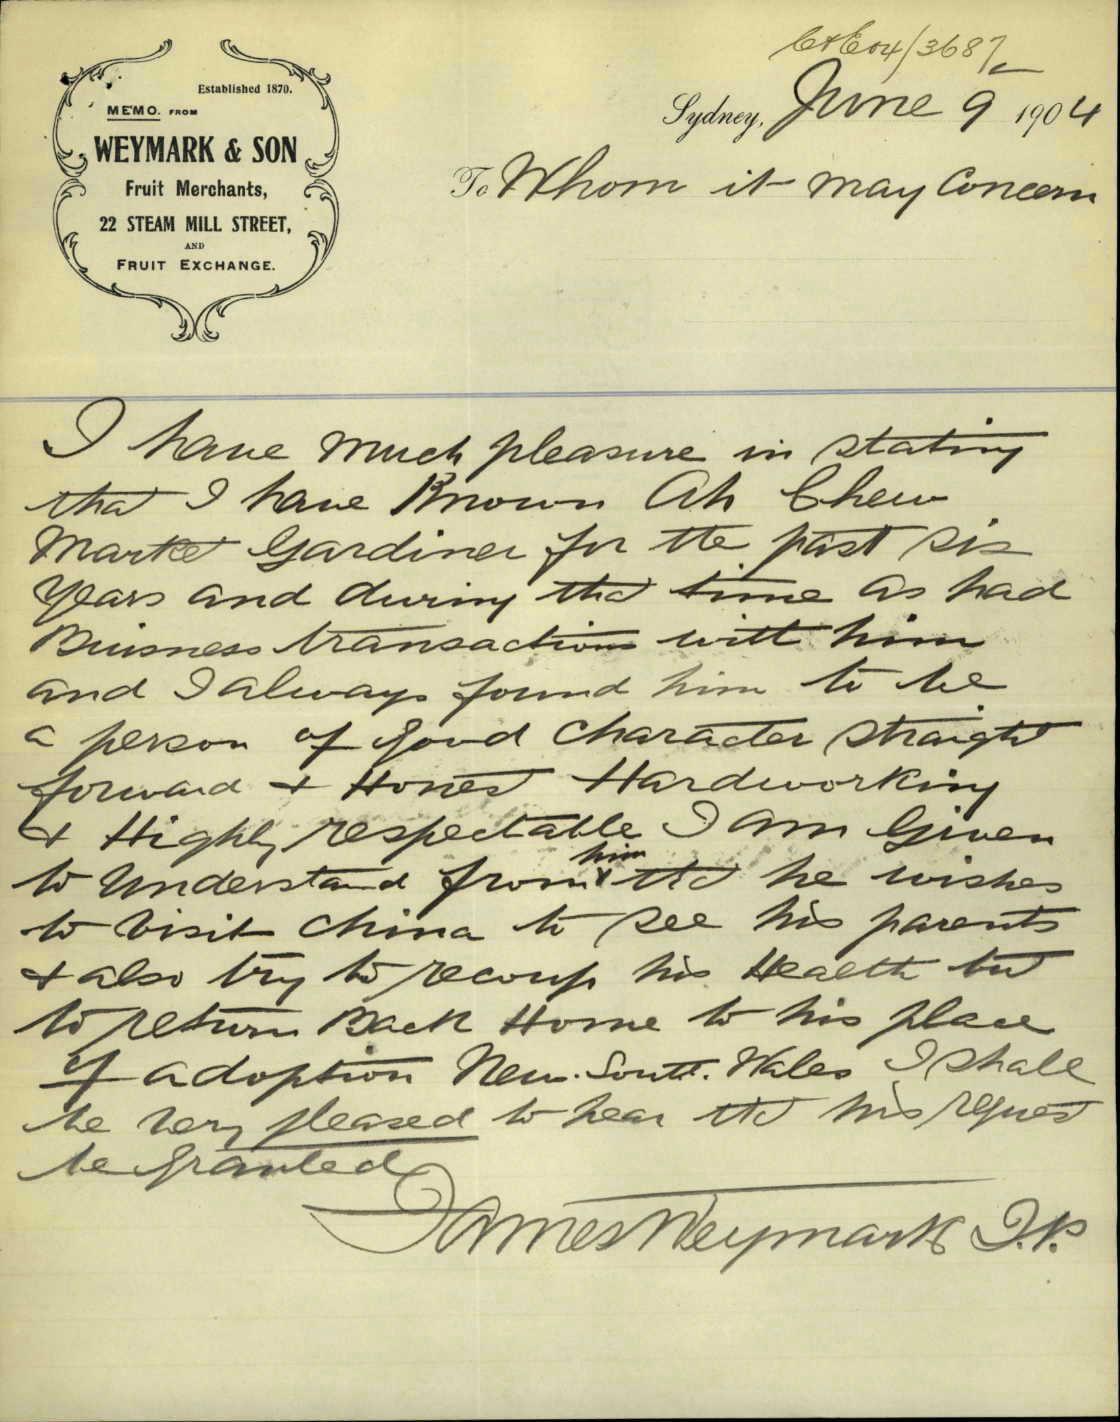 C&E04/3687
Established 1870.
MEMO. FROM
WEYMARK & SON
Fruit Merchants,
22 STEAM MILL STREET,
AND
FRUIT EXCHANGE.
Sydney, June 9 1904
To Whom it may Concern
I have much pleasure in stating
that I have Known Ah Chew
Market Gardiner for the past six
Years and during that time as had
Buisness transactions with him
and I always found him to be
a person of Good Character straight
forward & Honest Hardworking
& Highly respectable I am Given
him
to Understand from that he wishes
to Visit China to see his parents
& also try to recoup his Health but
to return Back Home to his place
of adoption New. South. Wales I shall
be very pleased to hear that his request
be Granted
James Weymark J.P.